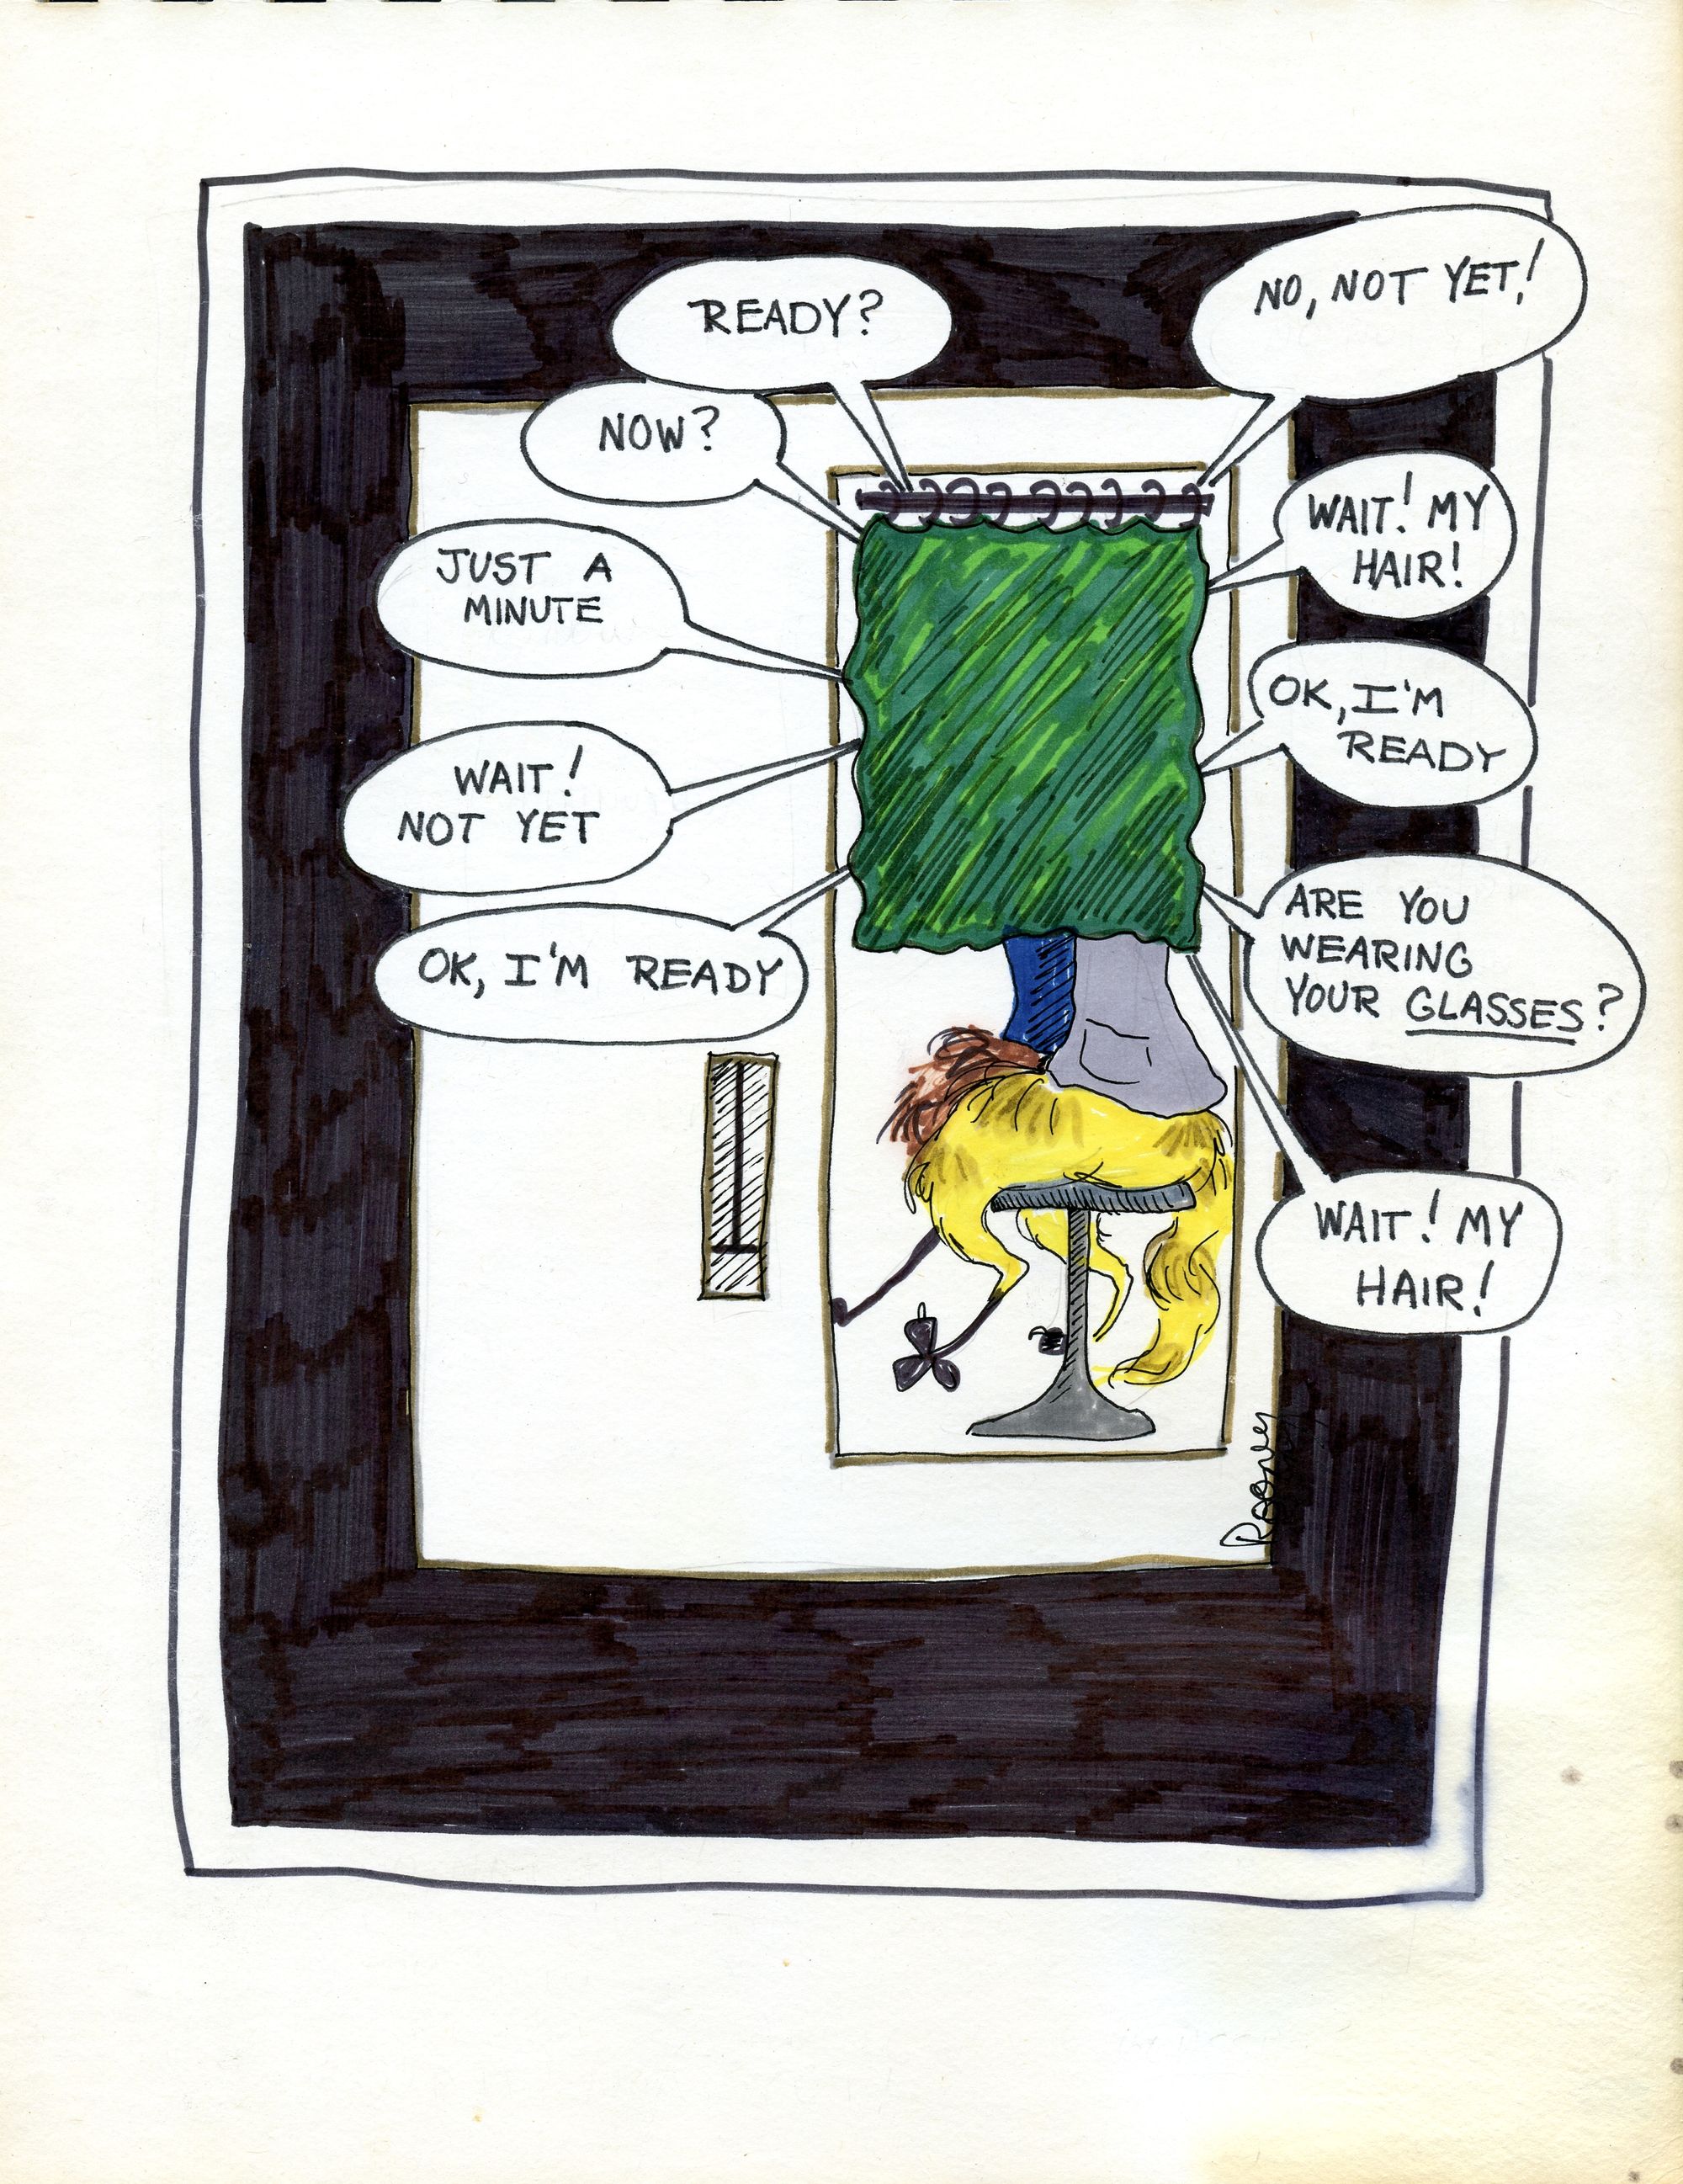 READY?
NO, NOT YET!
NOW?
WAIT! MY
HAIR!
JUST A
MINUTE
OK, I'M
READY
WAIT!
NOT YET
ARE YOU
WEARING
YOUR GLASSES?
OK, I'M READY
WAIT! MY
HAIR!
Rooney